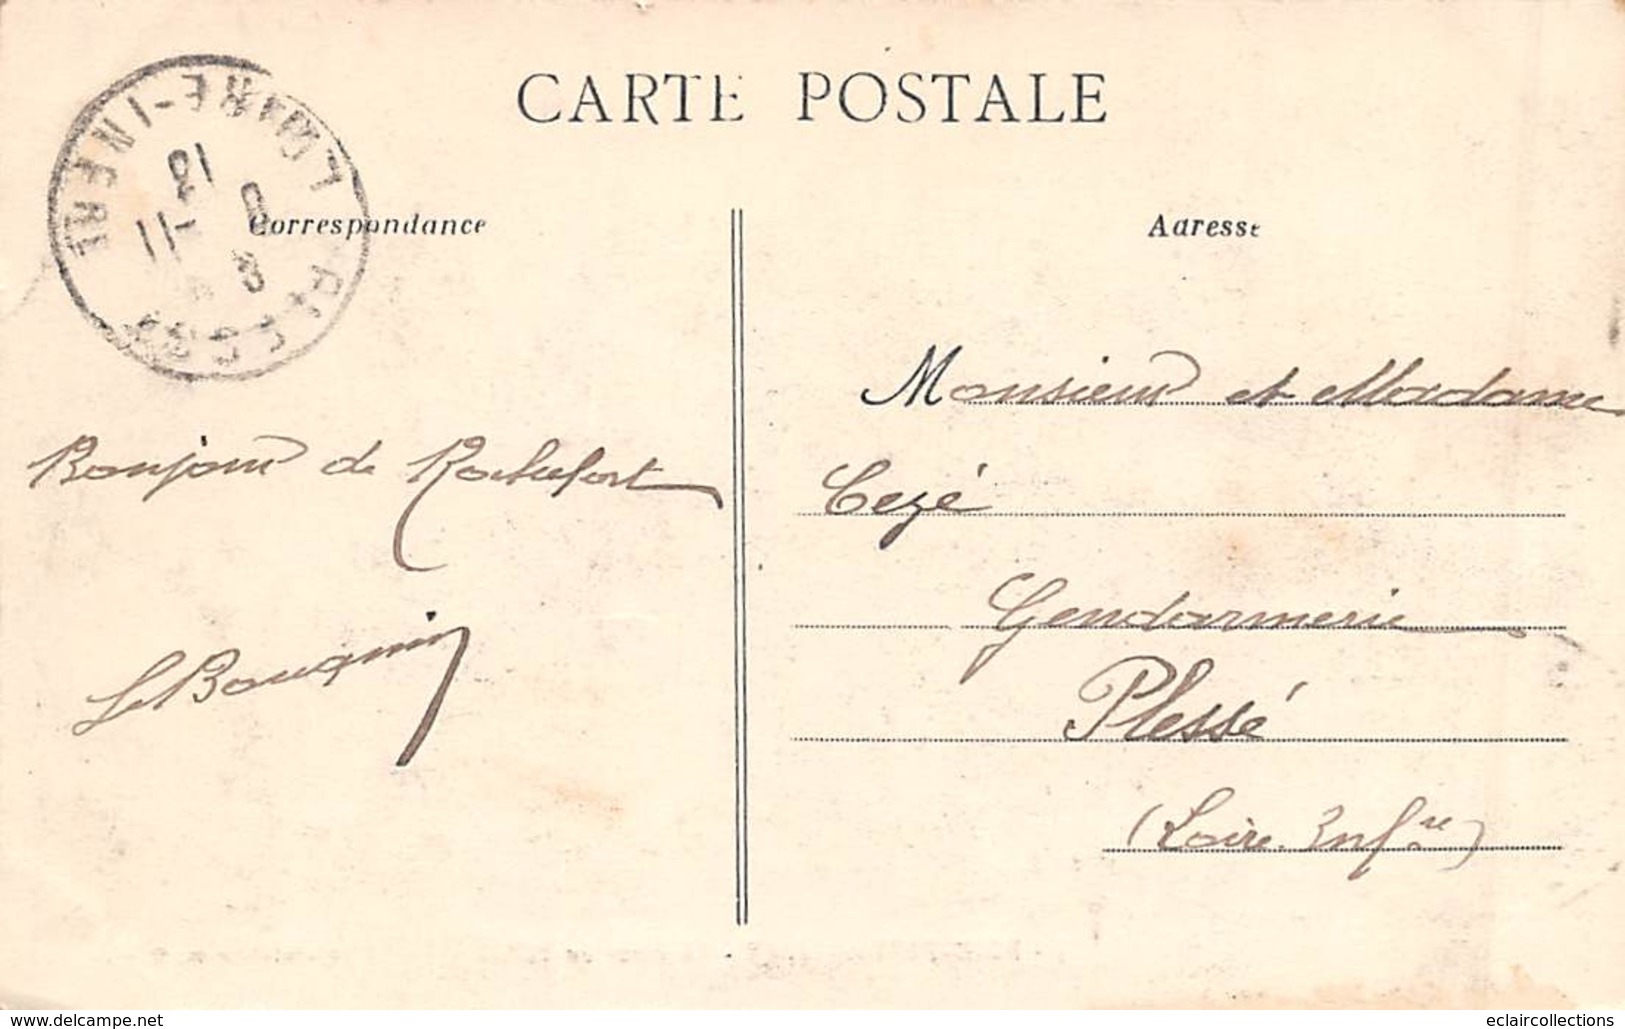 CARTE POSTALE
Correspondance
Adresse
PLESSÉ
LOIRE-INFRE
8
11
13
Bonjour de Rochefort
Le Bouquin
Monsieur et Madame
Cezé
Gendarmerie
Plessé
(Loire Infre)
www.delcampe.net
eclaircollections